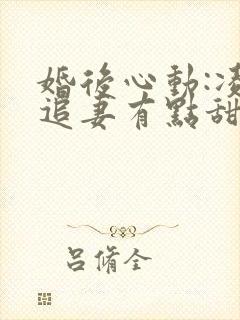 婚後心動:凌
追妻有點甜
呂脩全